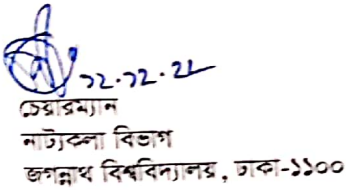 ২২.১২.২২
চেয়ারম্যান
নাট্যকলা বিভাগ
জগন্নাথ বিশ্ববিদ্যালয়, ঢাকা-১১০০